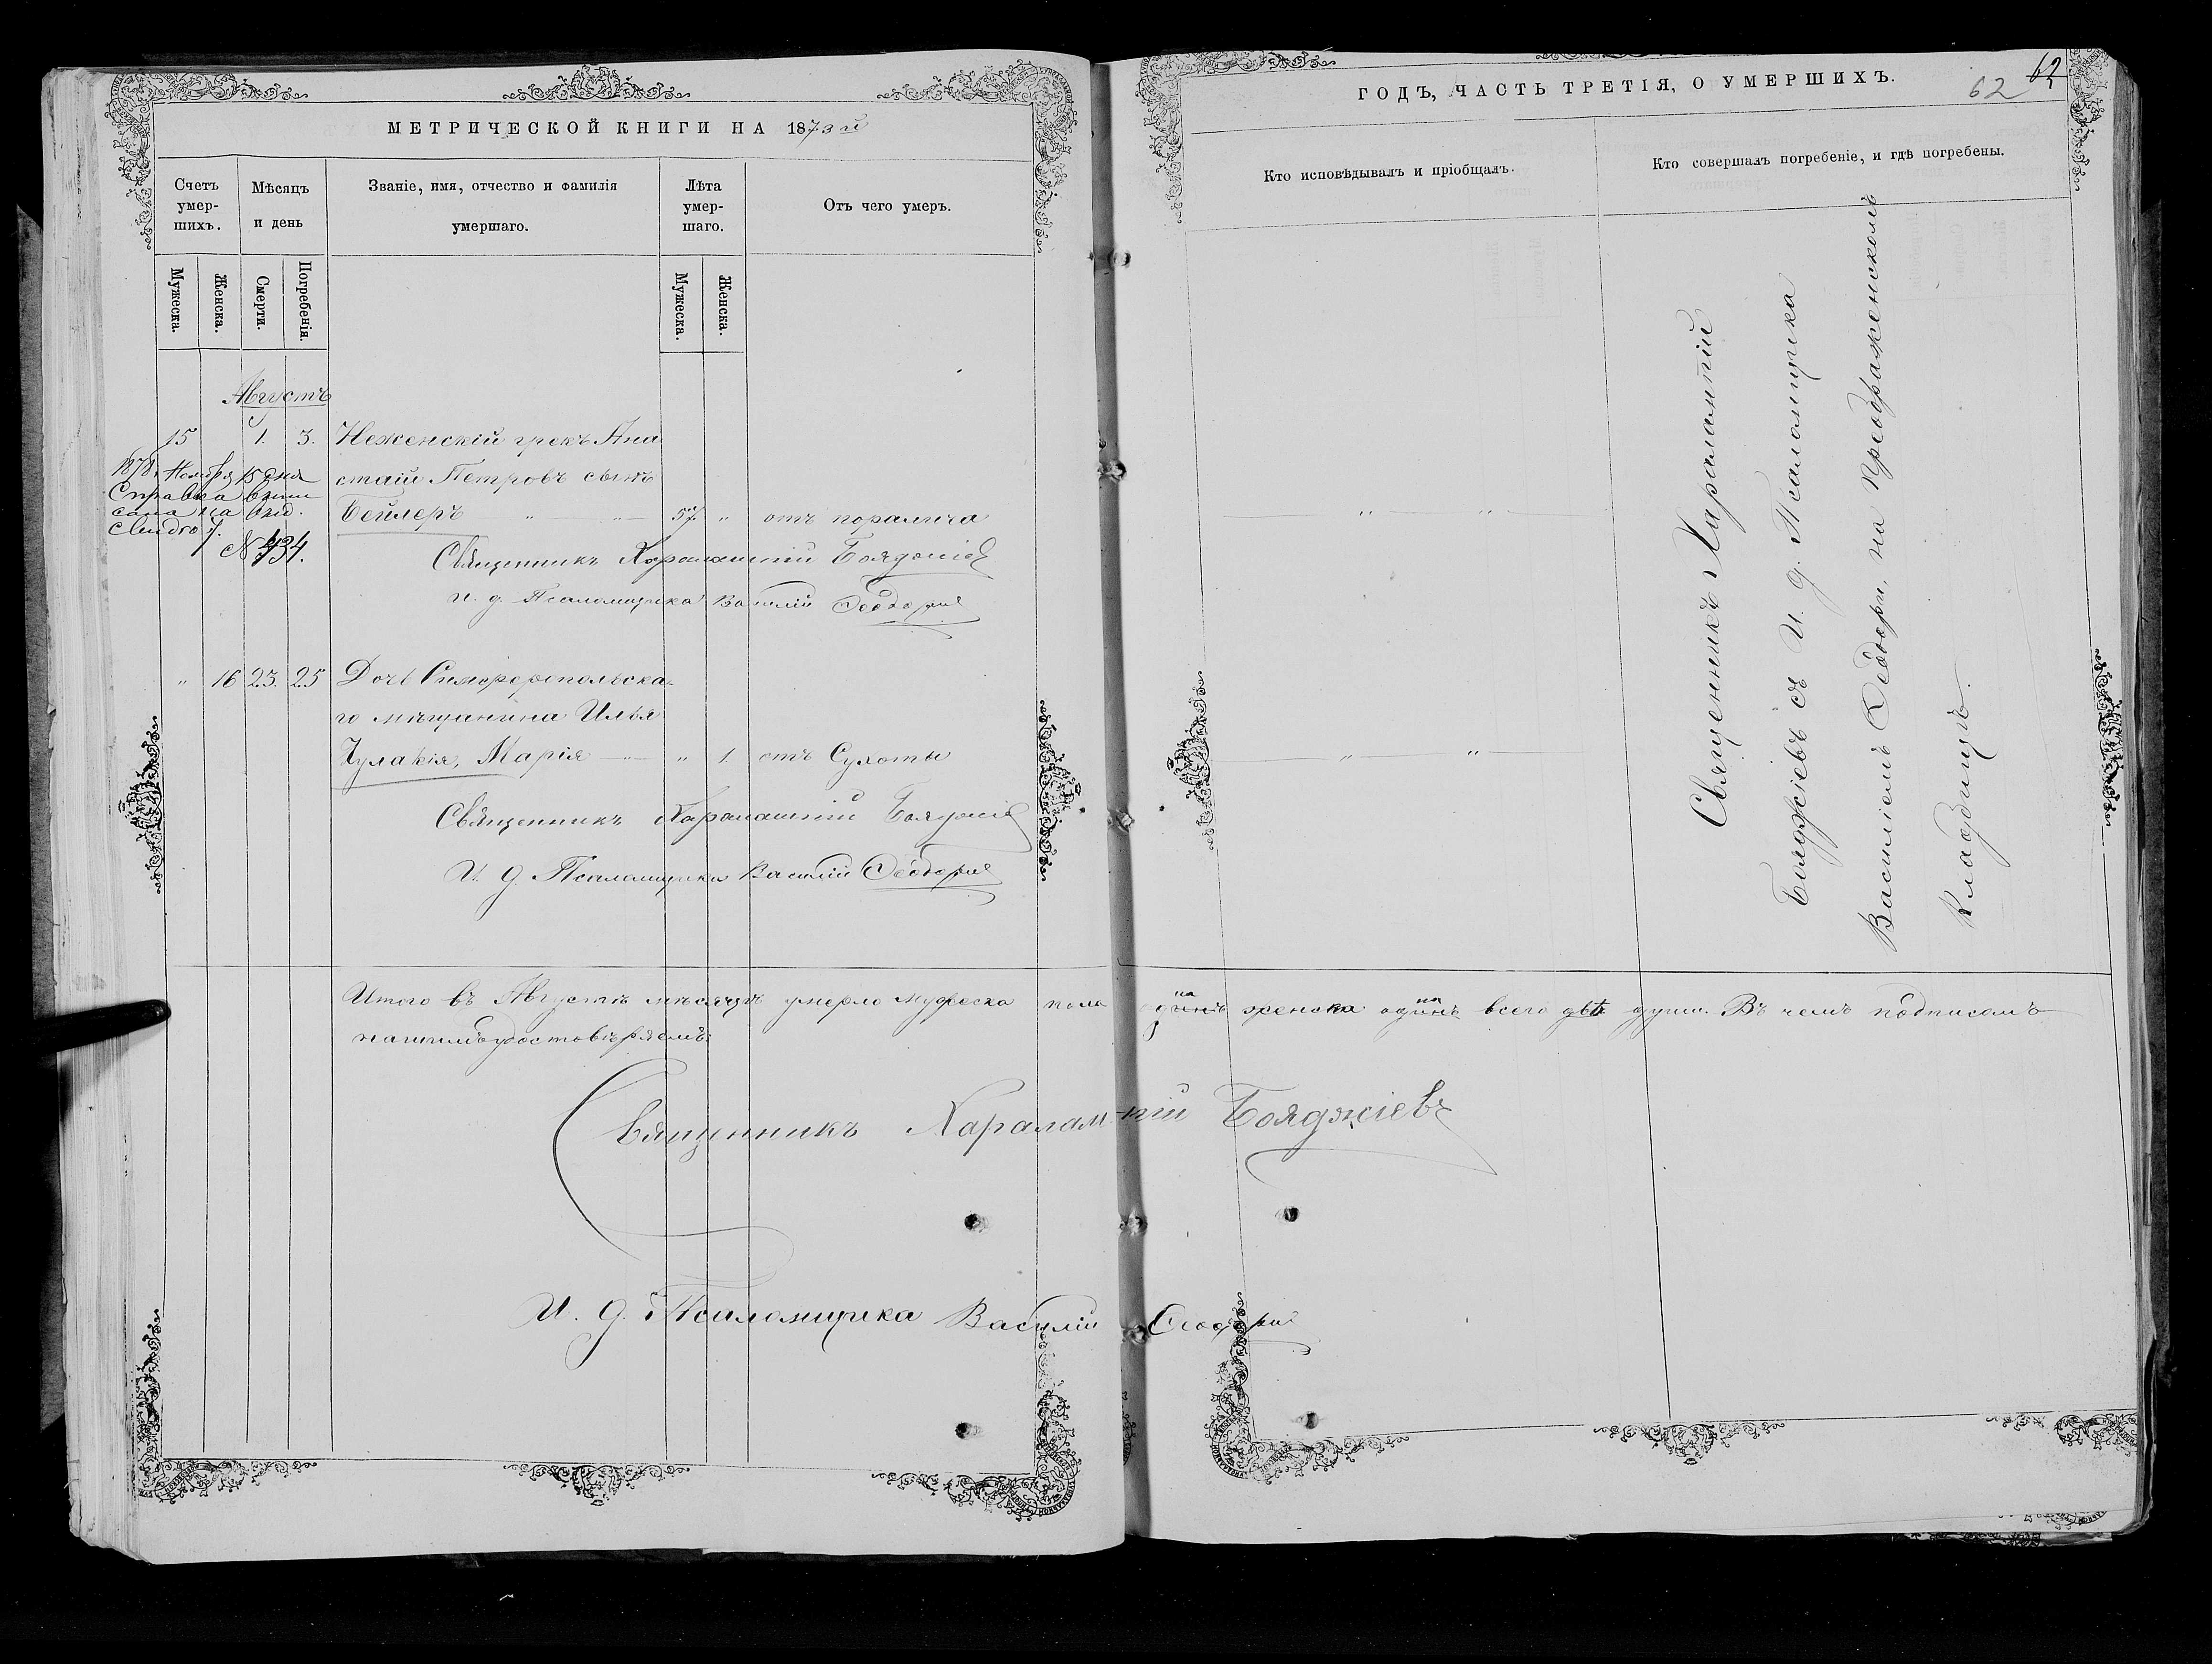 МЕТРИЧЕСКОЙ КНИГИ НА 1873 й
Счетъ умер-шихъ.
Мѣсяцъ и день
Званіе, имя, отчество и фамилія умершаго.
Лѣта умер-шаго.
Отъ чего умеръ.
Мужеска.
Женска.
Смерти.
Погребенія.
Мужеска.
Женска.
Августъ
15 1. 3. Неженскій грекъ Ана
стасій Петровъ сынъ
Бейлеръ " — 57. " отъ паралича
1878. Ноября 15 дня
Справка
на
N 434.
Священникъ Харалампій Бояджіев
И. д. Псаломщика Василій Ѳеодори
" 16 23. 25 Дочь Симферопольска-
го мѣщанина Илья
Чулакія, Марія — " 1. отъ Сухоты
Священникъ Харалампій Бояджіев
И. д. Псаломщика Василій Ѳеодори
Итого въ Августѣ мѣсяцѣ умерло мужеска пола одинъ женска одна всего двѣ души. Въ чемъ подписомъ
нашимъ удостовѣряемъ:
Священникъ Харалампій Бояджіевъ
И. д. Псаломщика Василій Ѳеодори
62 62
ГОДЪ, ЧАСТЬ ТРЕТІЯ, О УМЕРШИХЪ.
Кто исповѣдывалъ и пріобщалъ.
Кто совершалъ погребеніе, и гдѣ погребены.
— " " —
— " " —
Священникъ Харалампій
Бояджіевъ съ И. д. Псаломщика
Василіемъ Ѳеодори, на Преображенскомъ
Кладбищѣ.